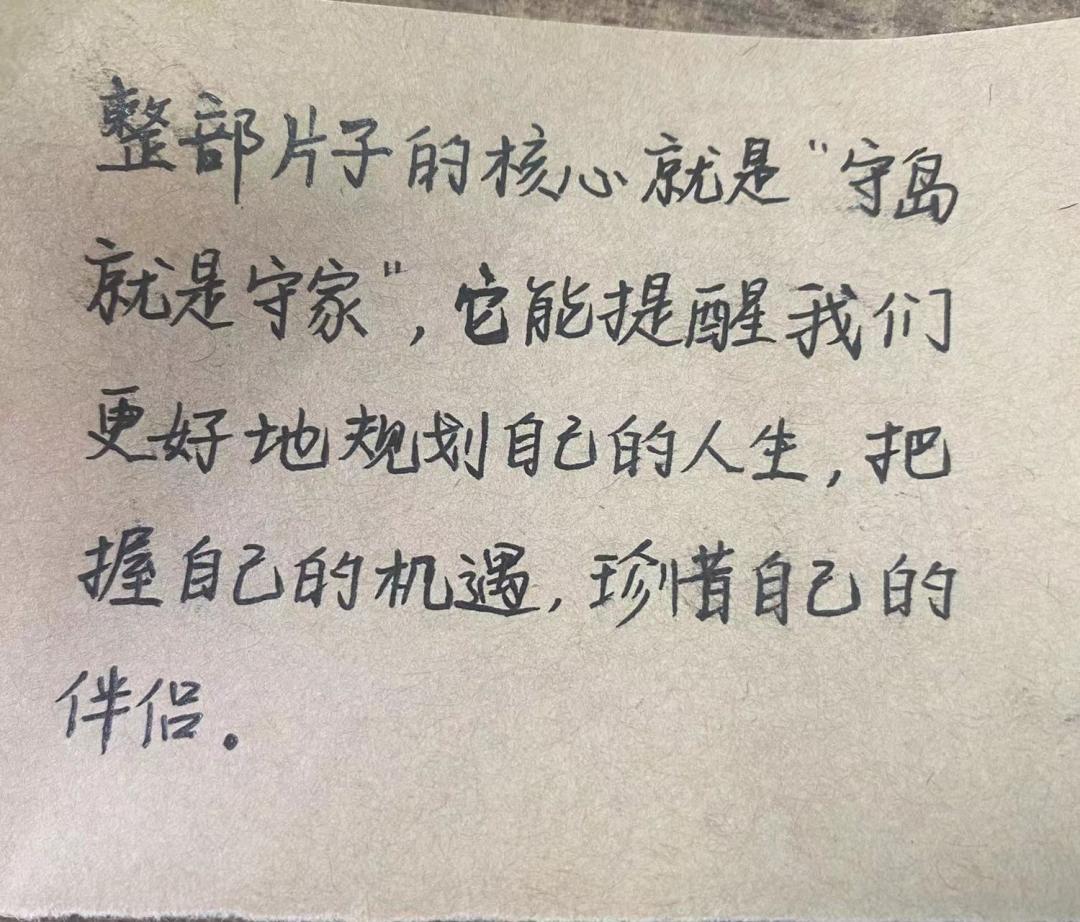 整部片子的核心就是“守岛
就是守家”,它能提醒我们
更好地规划自己的人生,把
握自己的机遇,珍惜自己的
伴侣.